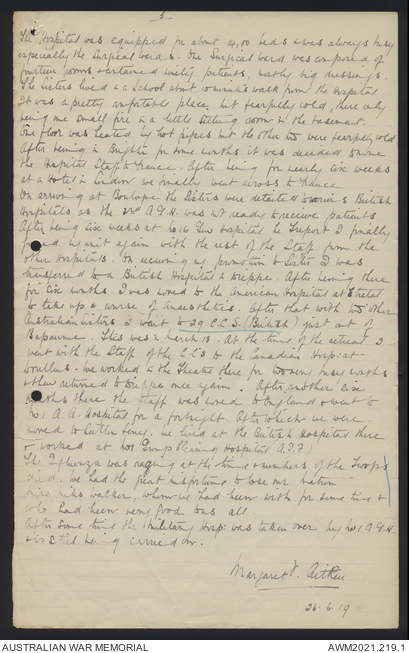 -5-
The Hospital was equipped for about 1400 beds & was always busy
especially the Surgical wards. One Surgical ward was composed of
fourteen rooms & contained ninety patients, mostly big dressings.
The Sisters lived in a School about 10 minutes walk from the Hospital
It was a pretty comfortable place, but fearfully cold, there only
being one small fire in a little sitting room in the basement.
One floor was heated by hot pipes but the other two were fearfully cold
After being in Brighton for some months it was decided to move
the Hospital Staff to France. After being for nearly six weeks
at a Hotel in London we finally went across to France
On arriving at Boulogne the Sisters were detailed to various British
Hospitals as the 2nd A.G.H. was not ready to receive patients
After being six weeks at No 16 Gen Hospital Le Treport I finally
joined my unit again with the rest of the Staff from the
other hospitals. On receiving my promotion to Sister I was
transferred to a British Hospital in Dieppe. After being there
for six months I was moved to the American Hospital at Etretat
to take up a course of Anaesthetics. After that with two other
Australian Sisters I went to 29 C.C.S. (British) just out of
Bapaume. This was in March 18. At the time of the retreat I
went with the Staff of the C.C.S to the Canadian Hosp: at
Doullens. We worked in the Theatre there for two very busy months
& then returned to Dieppe once again. After another six
months there the staff was moved to England & went to
No 1 A.A. Hospital for a fortnight. After which we were
moved to Sutton Veny. We lived at the British Hospital there
& worked at No 1 Group Clearing Hospital A.I.F.
The Influenza was raging at the time & numbers of the Troops
died. We had the great misfortune to lose our matron
Miss Miles Walker, whom we had been with for some time &
who had been very good to us all.
After some time the Military Hosp: was taken over by No 1 A.G.H.
& is still being carried on.
Margaret V. Aitken
26.6.19
AUSTRALIAN WAR MEMORIAL
AWM2021.219.1